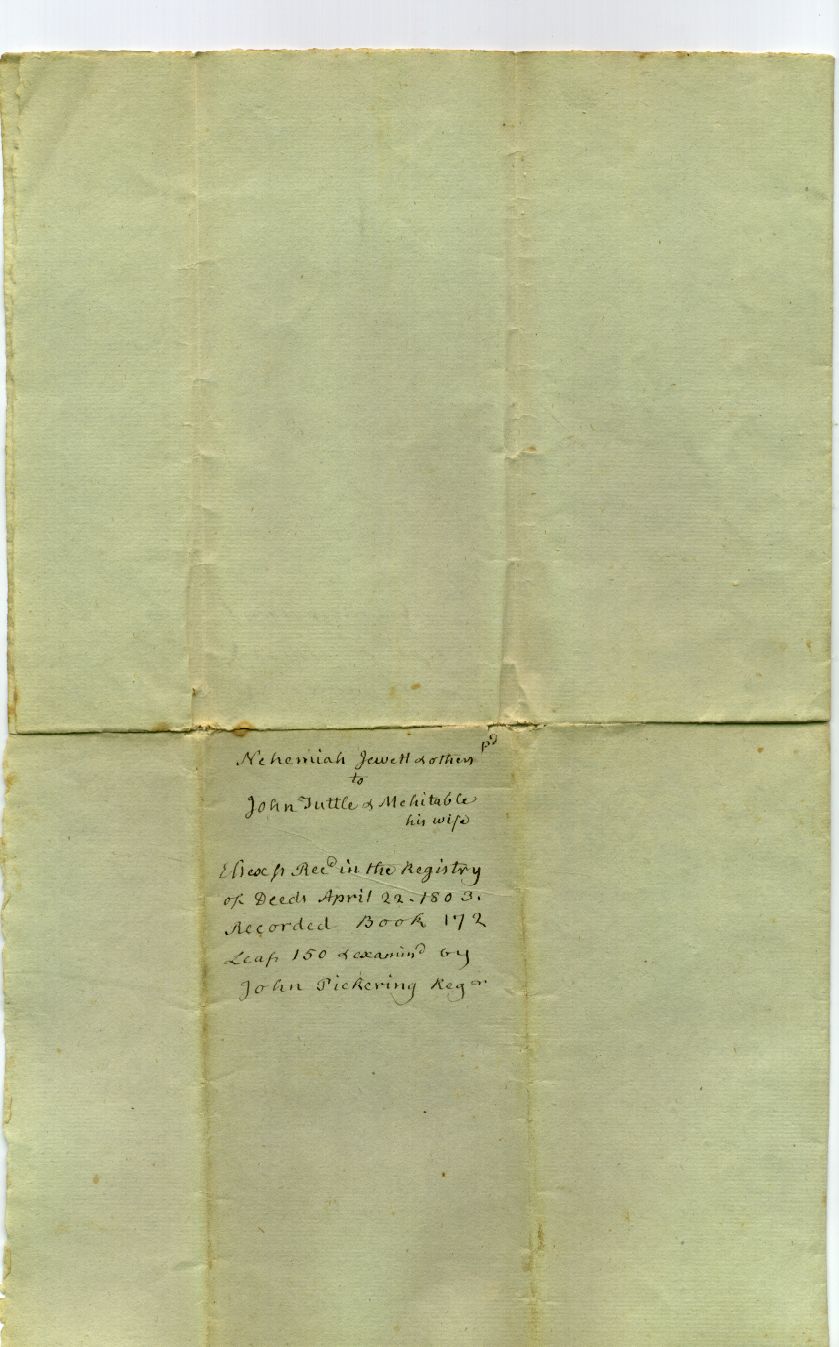 pd
Nehemiah Jewett & others
to
John Tuttle & Mehitable
his wife
Essex ss Recd in the Registry
of Deeds April 22. 1803.
Recorded Book 172
Leaf 150 & examind by
John Pickering Regr